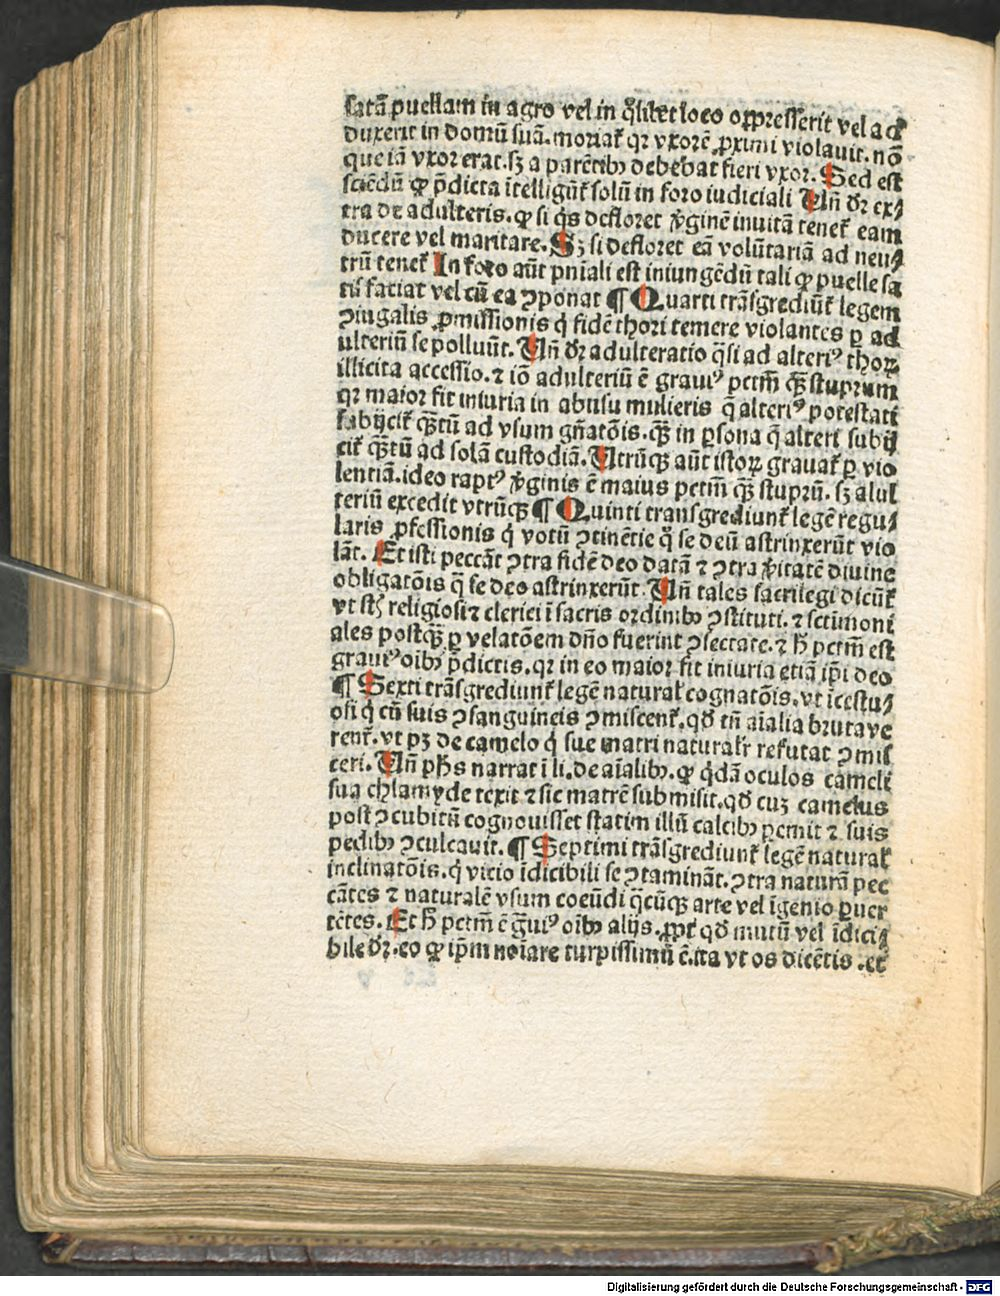 ſatā puellam in agro vel in q̄libet loco oppreſſerit vel ad
duxerit in domū ſuā. moriat̄ qꝛ vxorē ꝓximi violauit. nō
que iā vxor erat. ſꝫ a parētibꝰ debebat fieri vxor. Sed eſt
ſciēdū ꝙ p̄dicta ītelligūt̄ ſolū in foro iudiciali Uñ dꝛ ex⸗
tra de adulteris. ꝙ ſi q̄s defloret v̄ginē inuitā tenet̄ eam
ducere vel maritare. Sꝫ ſi defloret eā volūtariā ad neu⸗
trū tenet̄ In foro aūt pn̄iali eſt iniungēdū tali ꝙ puelle ſa
tiſfaciat vel cū ea ꝯponat ¶ Quarti trāſgrediūt̄ legem
ꝯiugalis ꝓmiſſionis q̇ fidē thori temere violantes ꝑ ad
ulteriū ſe polluūt. Uñ dꝛ adulteratio q̄ſi ad alteriꝰ thoꝝ
illicita acceſſio. ⁊ iō adulteriū ē grauiꝰ pctm̄ qꝫ̄ ſtuprum
qꝛ maior fit iniuria in abuſu mulieris q̄ alteriꝰ poteſtati
ſubijcit̄ qꝫ̄tū ad vſum gn̄atōis. qꝫ̄ in ꝑſona q̄ alteri ſubij
cit̄ qꝫ̄tū ad ſolā cuſtodiā. Utrūqꝫ aūt iſtoꝝ grauat̄ ꝑ vio
lentiā. ideo raptꝰ v̄ginis ē maius pctm̄ qꝫ̄ ſtuprū. ſꝫ adul
teriū excedit vtrūqꝫ ¶ Quinti tranſgrediunt̄ legē regu⸗
laris ꝓfeſſionis q̇ votū ꝯtinētie q̊ ſe deū aſtrinxerūt vio
lāt. Et iſti peccāt ꝯtra fidē deo datā ⁊ ꝯtra v̄itatē diuine
obligatōis q̄ ſe deo aſtrinxerūt. Uñ tales ſacrilegi dicūt̄
vt ſt̄ religioſi ⁊ clerici ī ſacris ordinibꝰ ꝯſtituti. ⁊ ſctīmoni
ales poſtqꝫ̄ ꝑ velatōem dn̄o fuerint ꝯſecrate. ⁊ h̄ pctm̄ eſt
grauiꝰ oībꝰ p̄dictis. qꝛ in eo maior fit iniuria etiā ip̄i deo
¶ Sexti trāſgrediunt̄ legē natural̄ cognatōis. vt īceſtu⸗
oſi q̇ cū ſuis ꝯſanguineis ꝯmiſcent̄. qd̄ tn̄ aīalia bruta ve
rent̄. vt pꝫ de camelo q̇ ſue matri natural̄r refutat ꝯmiſ
ceri. Uñ ph̄s narrat ī li. de aīalibꝰ. ꝙ q̇dā oculos cameli
ſua chlamyde texit ⁊ ſic matrē ſubmiſit. qd̄ cuꝫ camelus
poſt ꝯcubitū cognouiſſet ſtatim illū calcibꝰ ꝑemit ⁊ ſuis
pedibꝰ ꝯculcauit. ¶ Septimi trāſgrediunt̄ legē natural̄
inclinatōis. q̇ vicio īdicibili ſe ꝯtamināt. ꝯtra naturā pec
cātes ⁊ naturalē vſum coeūdi q̄cūqꝫ arte vel īgenio ꝑuer
tētes. Et h̄ pctm̄ ē ḡuiꝰ oībꝰ alijs. ꝓpt̄ qd̄ mutū vel īdici⸗
bile dꝛ. eo ꝙ ip̄m noīare turpiſſimū ē. ita vt os dicētis . et
Digitalisierung gefördert durch die Deutsche Forschungsgemeinschaft - DFG